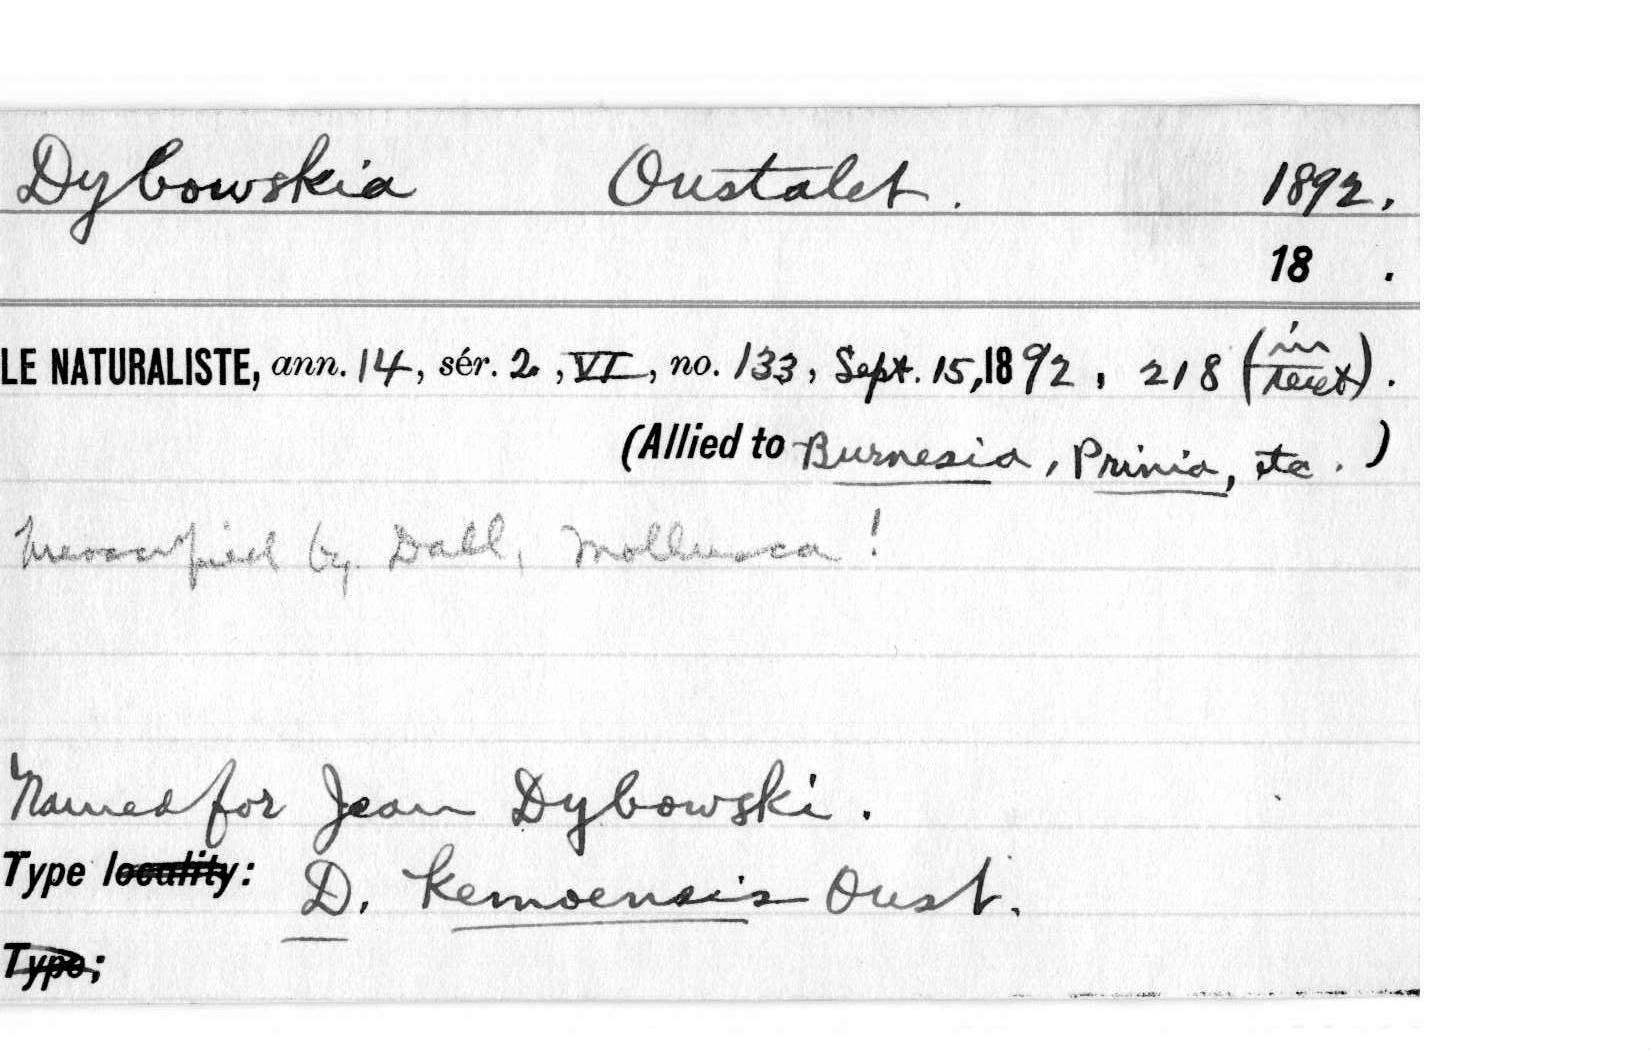 Dybowskia Oustalet. 1892.
18 .
LE NATURALISTE, ann. 14, sér. 2, VI, no. 133, Sept. 15, 1892, 218 (in text).
(Allied to Burnesia, Prinia, etc.)
Preoccupied by Dall, Mollusca!
Named for Jean Dybowski.
Type locality: D. kemoensis Oust.
Type;